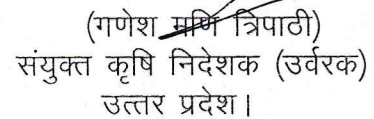 (गणेश मणि त्रिपाठी)
संयुक्त कृषि निदेशक (उर्वरक)
उत्तर प्रदेश।